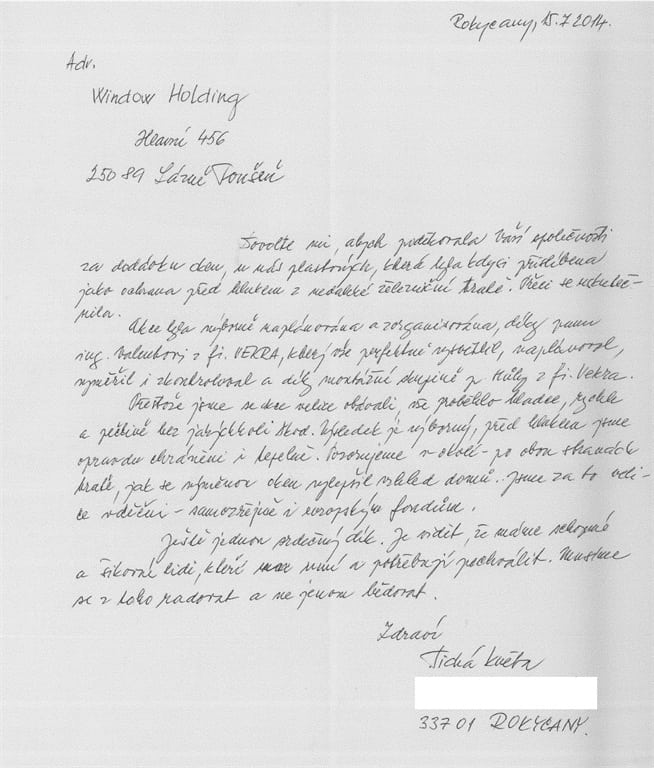 Rokycany, 15.7.2014.
Adr.
Window Holding
Hlavní 456
250 89 Lázně Toušeň
Dovolte mi, abych poděkovala Vaší společnosti
za dodávku oken, u nás plastových, která byla kdysi přislíbena
jako ochrana před hlukem z nedaleké železniční tratě. Přeci se uskuteč-
nila.
Akce byla výborně naplánována a zorganisována, díky panu
ing. Valentovi z fi. VEKRA, který vše perfektně vysvětlil, naplánoval,
vyměřil i zkontroloval a díky montážní skupině p. Hůly z fi. Vekra.
Přestože jsme se akce velice obávali, vše proběhlo hladce, rychle
a pečlivě bez jakýchkoli škod. Výsledek je výborný, před hlukem jsme
opravdu chráněni i tepelně. Pozorujeme v okolí - po obou stranách
tratě, jak se výměnou oken vylepšil vzhled domů. Jsme za to veli-
ce vděčni - samozřejmě i evropským fondům.
Ještě jednou srdečný dík. Je vidět, že máme schopné
a šikovné lidi, kteří umí a potřebují pochválit. Musíme
se z toho radovat a ne jenom bědovat.
Zdraví
Tichá Květa
337 01 ROKYCANY.